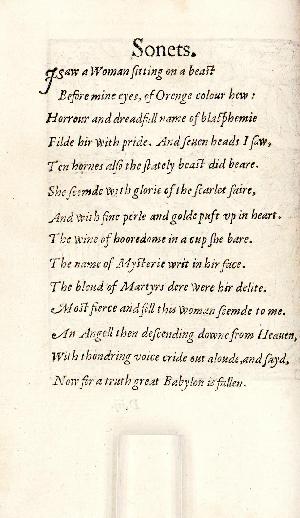 Sonets.
I saw a Woman sitting on a beast
Before mine eyes, of Orenge colour hew:
Horrour and dreadfull name of blasphemie
Filde hir with pride. And seuen heads I saw,
Ten hornes also the stately beast did beare.
She seemde with glorie of the scarlet faire,
And with fine perle and golde puft vp in heart.
The wine of hooredome in a cup she bare.
The name of Mysterie writ in hir face.
The bloud of Martyrs dere were hir delite.
Most fierce and fell this woman seemde to me.
An Angell then descending downe from Heauen,
With thondring voice cride out aloude, and sayd,
Now for a truth great Babylon is fallen.